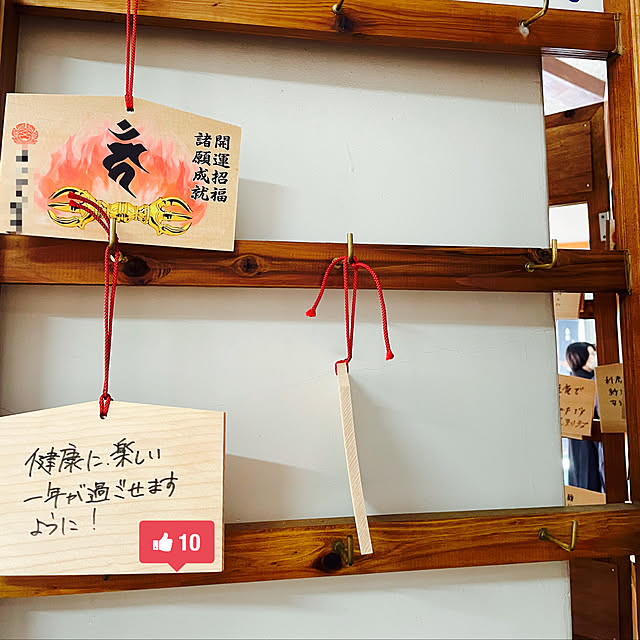 開運招福
諸願成就
健康に、楽しい
一年が過ごせます
ように!
10